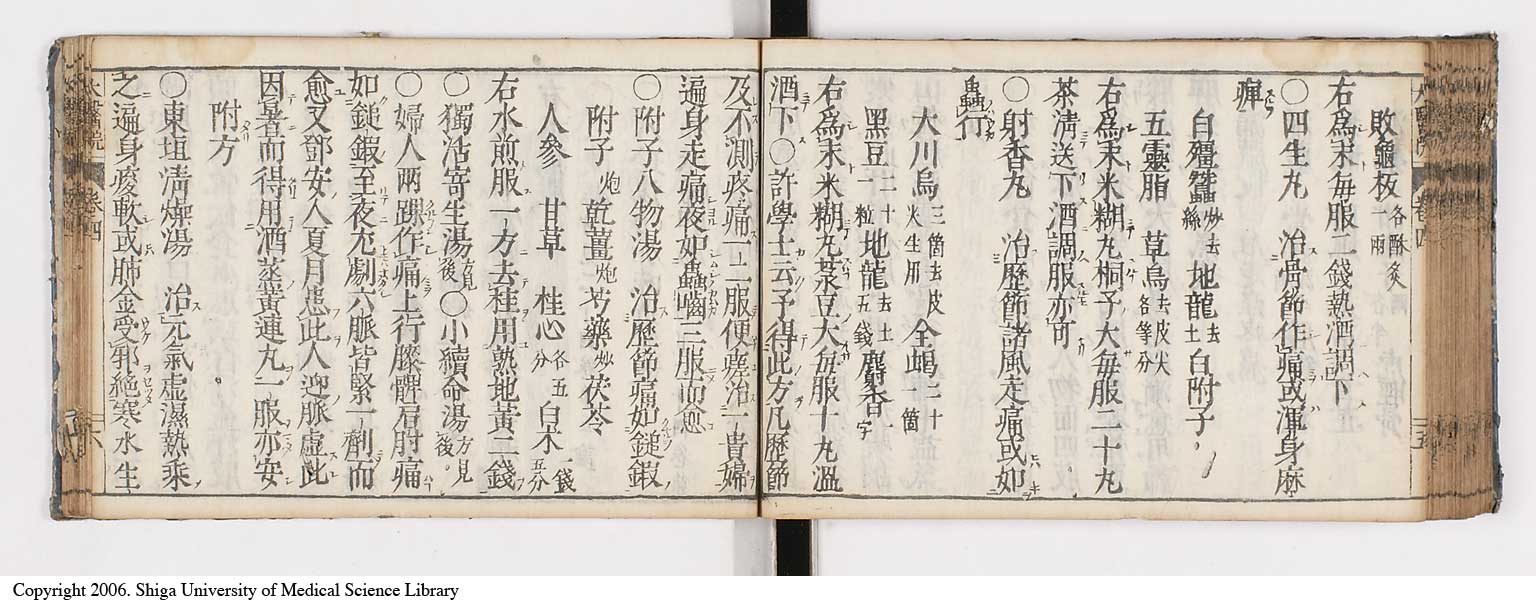 敗龜板各酥炙一兩
右為末每服一錢熱酒調下
○四生丸 治骨節作痛或渾身麻
痺
白殭蠶炒去絲 地龍去土 白附子
五靈脂 草烏去皮尖各等分
右為末米糊丸桐子大每服二十丸
茶清送下酒調服亦可
○射香丸 治歷節諸風走痛或如
蟲行
大川烏三箇去皮尖生用 全蝎二十一箇
黑豆二十一粒 地龍去土五錢 麝香一字
右為末米糊丸菉豆大每服十九溫
酒下○許學士云予得此方凡歷節
及不測疼痛一二服便瘥治一貴婦
遍身走痛夜如蟲嚙三服而愈
○附子八物湯 治歷節痛如鎚鍜
附子炮 乾薑炮 芍藥炒 茯苓
人參 甘草 桂心各五分 白朮一錢五分
右水煎服一方去桂用熟地黃二錢
○獨活寄生湯方見後○小續命湯方見後
○婦人兩踝作痛上行膝髀肩肘痛
如鎚鍜至夜尤劇六脈皆緊一劑而
愈又鄧安人夏月患此人迎脈虛此
因暑而得用酒蒸黃連丸一服亦安
附方
○東垣清燥湯 治元氣虛濕熱乘
之遍身痠軟或肺金受邪絕寒水生
卷四
Copyright 2006. Shiga University of Medical Science Library